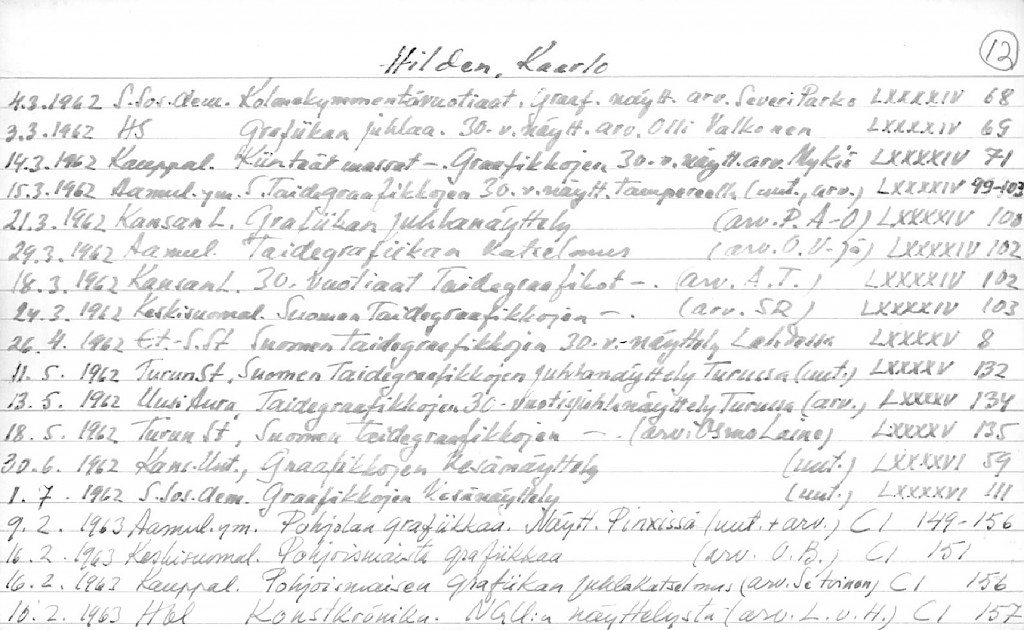 12
Hilden, Kaarlo
4.3.1962 S.Sos.dem. Kolmekymmentävuotiaat. Graaf. näytt. arv. Severi Parko LXXXXIV 68
3.3.1962 HS Grafiikan juhlaa. 30-v. näytt. arv. Olli Valkonen LXXXXIV 69
14.3.1962 Kauppal. Kiinteät massat -. Graafikkojen 30-v. näytt. arv. LXXXXIV 71
15.3.1962 Aamul. ym. S. Taidegraafikkojen 30-v. näytt. Tampereella (uut., arv.) LXXXXIV 99-103
21.3.1962 Kansan L. Grafiikan juhlanäyttely (arv. P. A-O) LXXXXIV 100
29.3.1962 Aamul. Taidegrafiikan katselmus (arv. O. V-jä) LXXXXIV 102
18.3.1962 Kansan L. 30-vuotiaat Taidegraafikot -. (arv. A.T.) LXXXXIV 102
24.3.1962 Keskisuomal. Suomen Taidegraafikkojen -. (arv. SR) LXXXXIV 103
26.4.1962 Et.-S.St Suomen Taidegraafikkojen 30-v.-näyttely Lahdessa LXXXXV 8
11.5.1962 Turun St., Suomen Taidegraafikkojen juhlanäyttely Turussa (uut.) LXXXXV 132
13.5.1962 Uusi Aura, Taidegraafikkojen 30-vuotisjuhlanäyttely Turussa (arv.) LXXXXV 134
18.5.1962 Turun St, Suomen Taidegraafikkojen -. (arv: Osmo Laine) LXXXXV 135
30.6.1962 Kans.Uut., Graafikkojen Kesänäyttely (uut.) LXXXXVI 59
1.7.1962 S.Sos.dem. Graafikkojen Kesänäyttely (uut.) LXXXXVI 111
9.2.1963 Aamul. ym. Pohjolan grafiikkaa. Näytt. Pinxissä (uut. + arv.) CI 149-156
16.2.1963 Keskisuomal. Pohjoismaista grafiikkaa (arv. O.B.) CI 151
16.2.1963 Kauppal. Pohjoismaisen Grafiikan juhlakatselmus (arv. ) CI 156
10.2.1963 Hbl Konstkrönika. NGU:n näyttelystä (arv. L.v.H.) CI 157